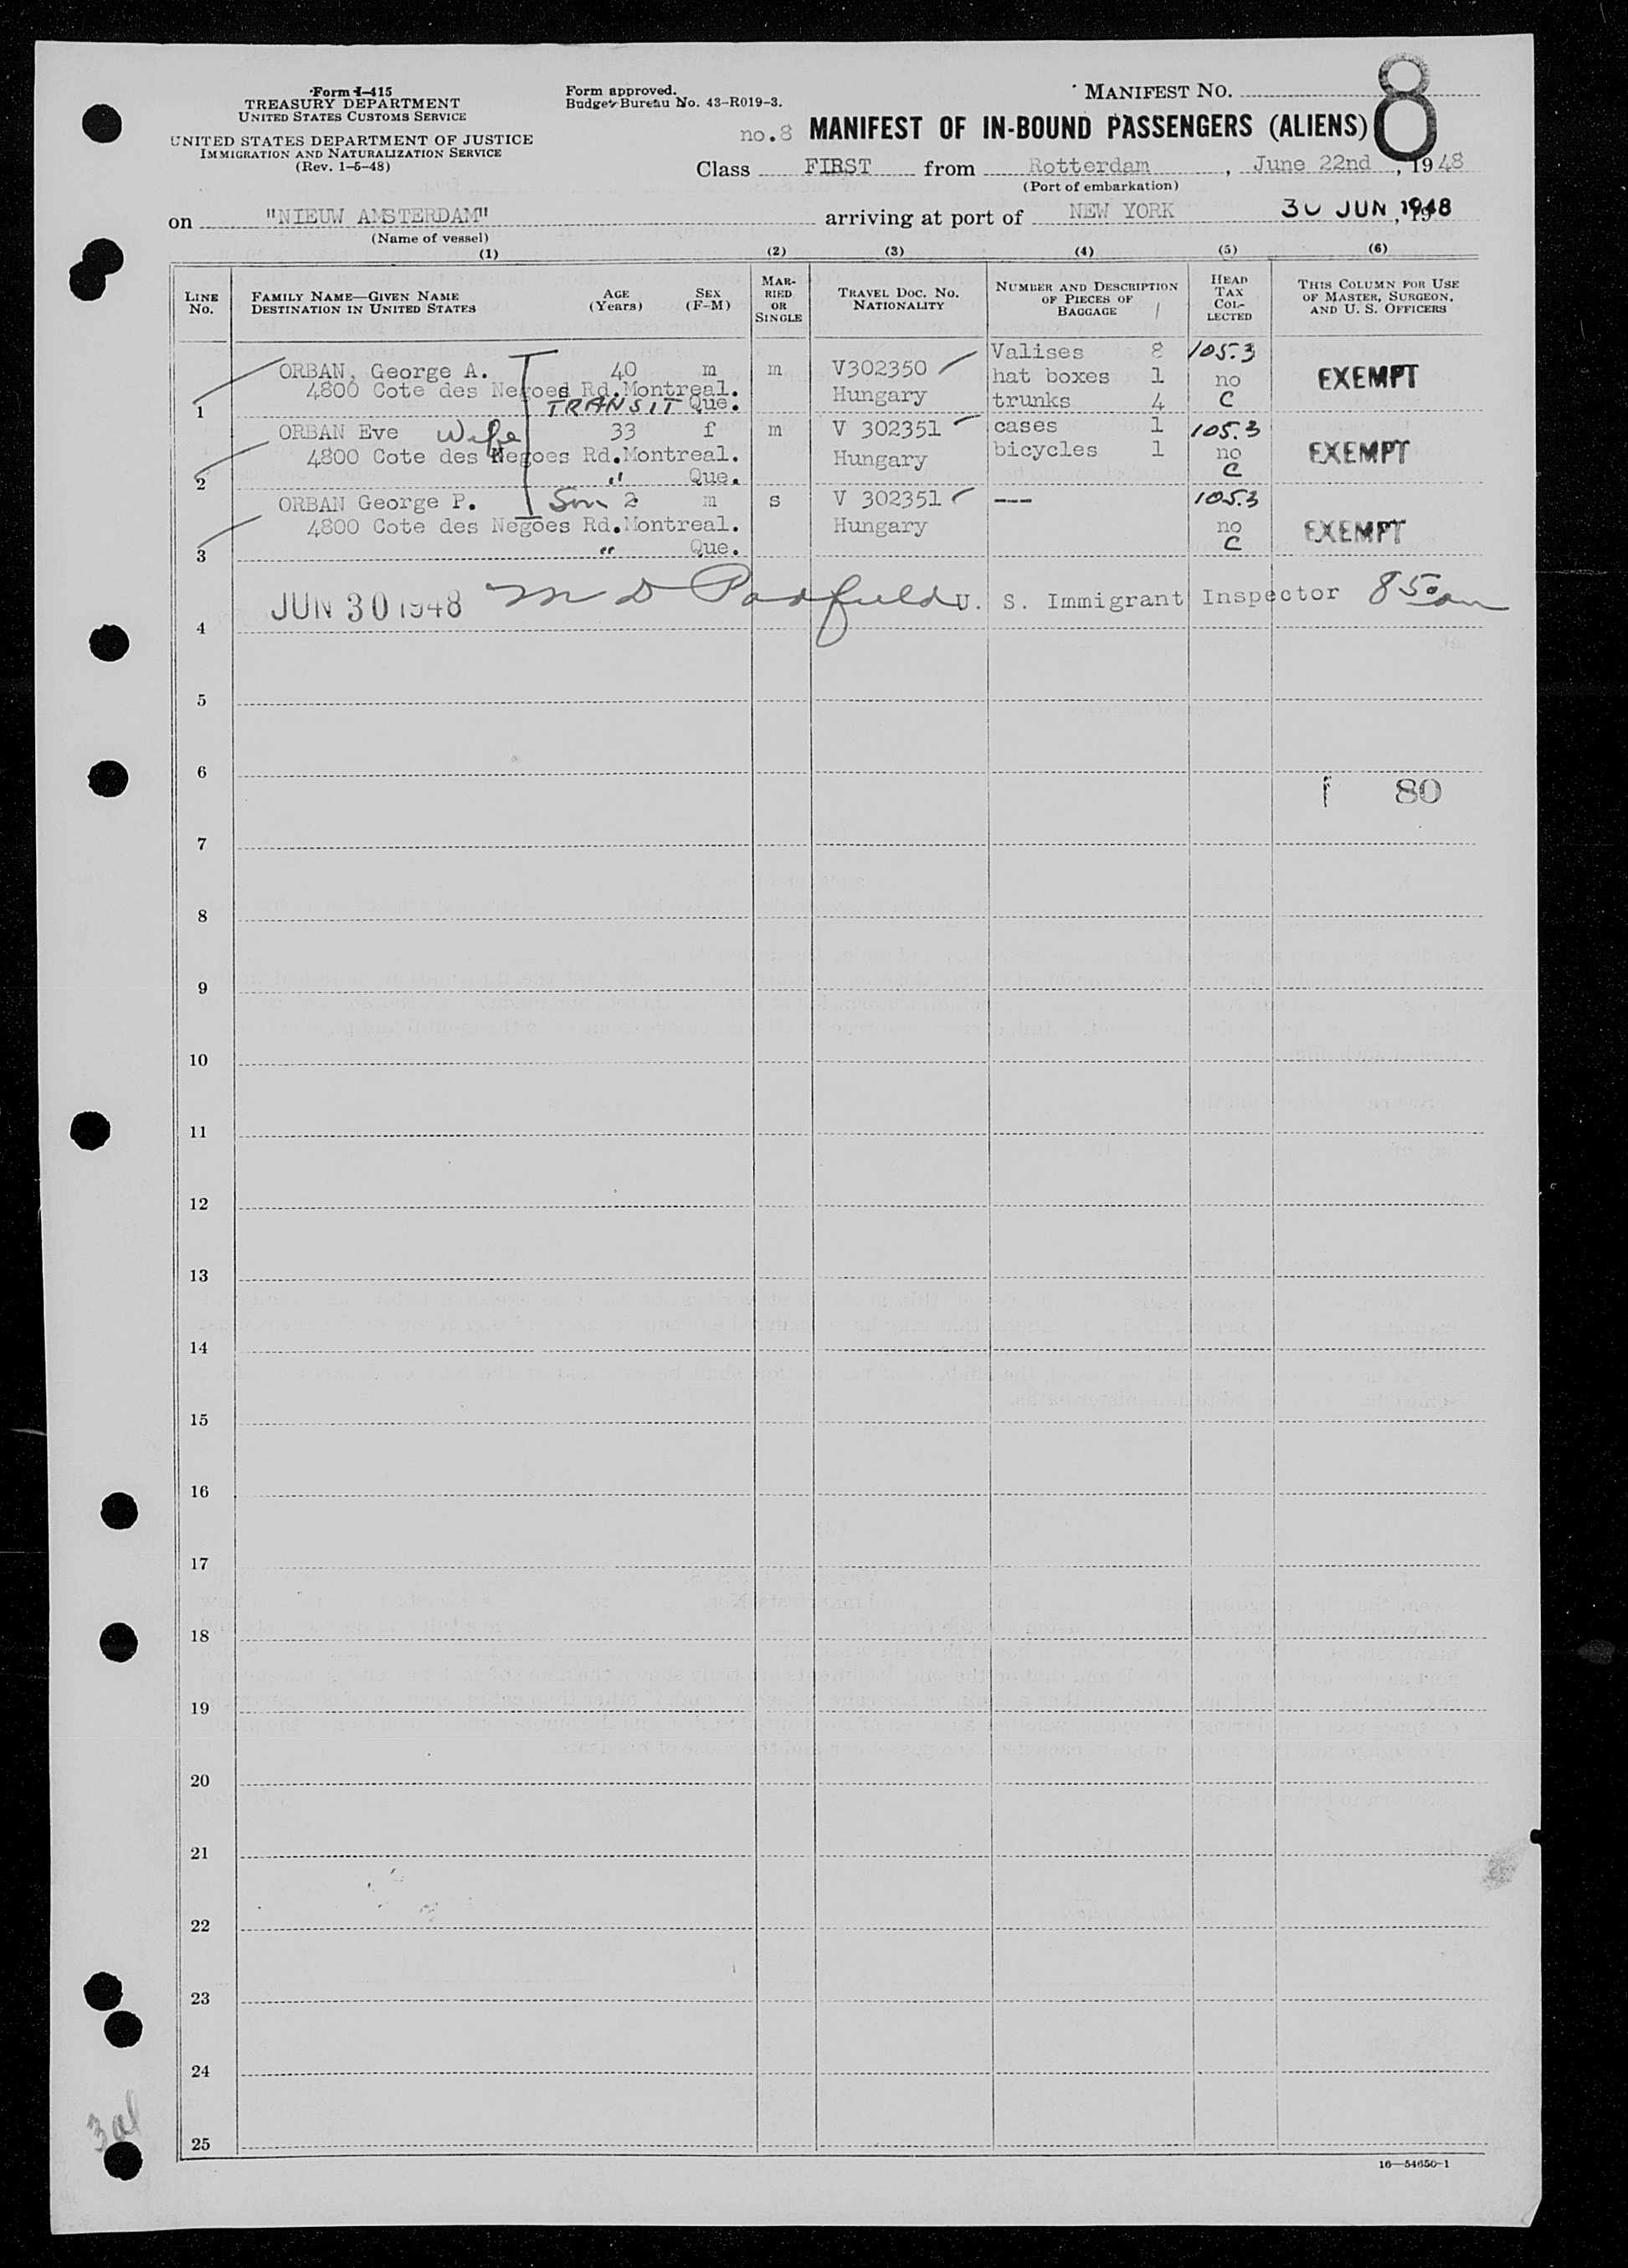 Form I-415
TREASURY DEPARTMENT
UNITED STATES CUSTOMS SERVICE
UNITED STATES DEPARTMENT OF JUSTICE
IMMIGRATION AND NATURALIZATION SERVICE
(Rev. 1-5-48)
Form approved.
Budget Bureau No. 43-R019-3.
MANIFEST NO. 8
no.8 MANIFEST OF IN-BOUND PASSENGERS (ALIENS)
Class FIRST from Rotterdam, June 22nd, 1948
(Port of embarkation)
on "NIEUW AMSTERDAM" arriving at port of NEW YORK 30 JUN 1948, 19
(Name of vessel)
(1) (2) (3) (4) (5) (6)
LINE No.
FAMILY NAME—GIVEN NAME
DESTINATION IN UNITED STATES
AGE (Years)
SEX (F-M)
MARRIED OR SINGLE
TRAVEL DOC. NO.
NATIONALITY
NUMBER AND DESCRIPTION OF PIECES OF BAGGAGE
HEAD TAX COLLECTED
THIS COLUMN FOR USE OF MASTER, SURGEON, AND U. S. OFFICERS
1 ORBAN, George A. 40 m m V302350 Valises 8 105.3
4800 Cote des Negoes Rd.Montreal. Hungary hat boxes 1 no EXEMPT
TRANSIT Que. trunks 4 C
2 ORBAN Eve Wife 33 f m V 302351 cases 1 105.3
4800 Cote des Negoes Rd.Montreal. Hungary bicycles 1 no EXEMPT
" Que. C
3 ORBAN George P. Son 2 m s V 302351 --- 105.3
4800 Cote des Negoes Rd.Montreal. Hungary no EXEMPT
" Que. C
4 JUN 30 1948 M D Padfield U. S. Immigrant Inspector 850am
5
6
80
7
8
9
10
11
12
13
14
15
16
17
18
19
20
21
22
23
24
25
16—54650-1